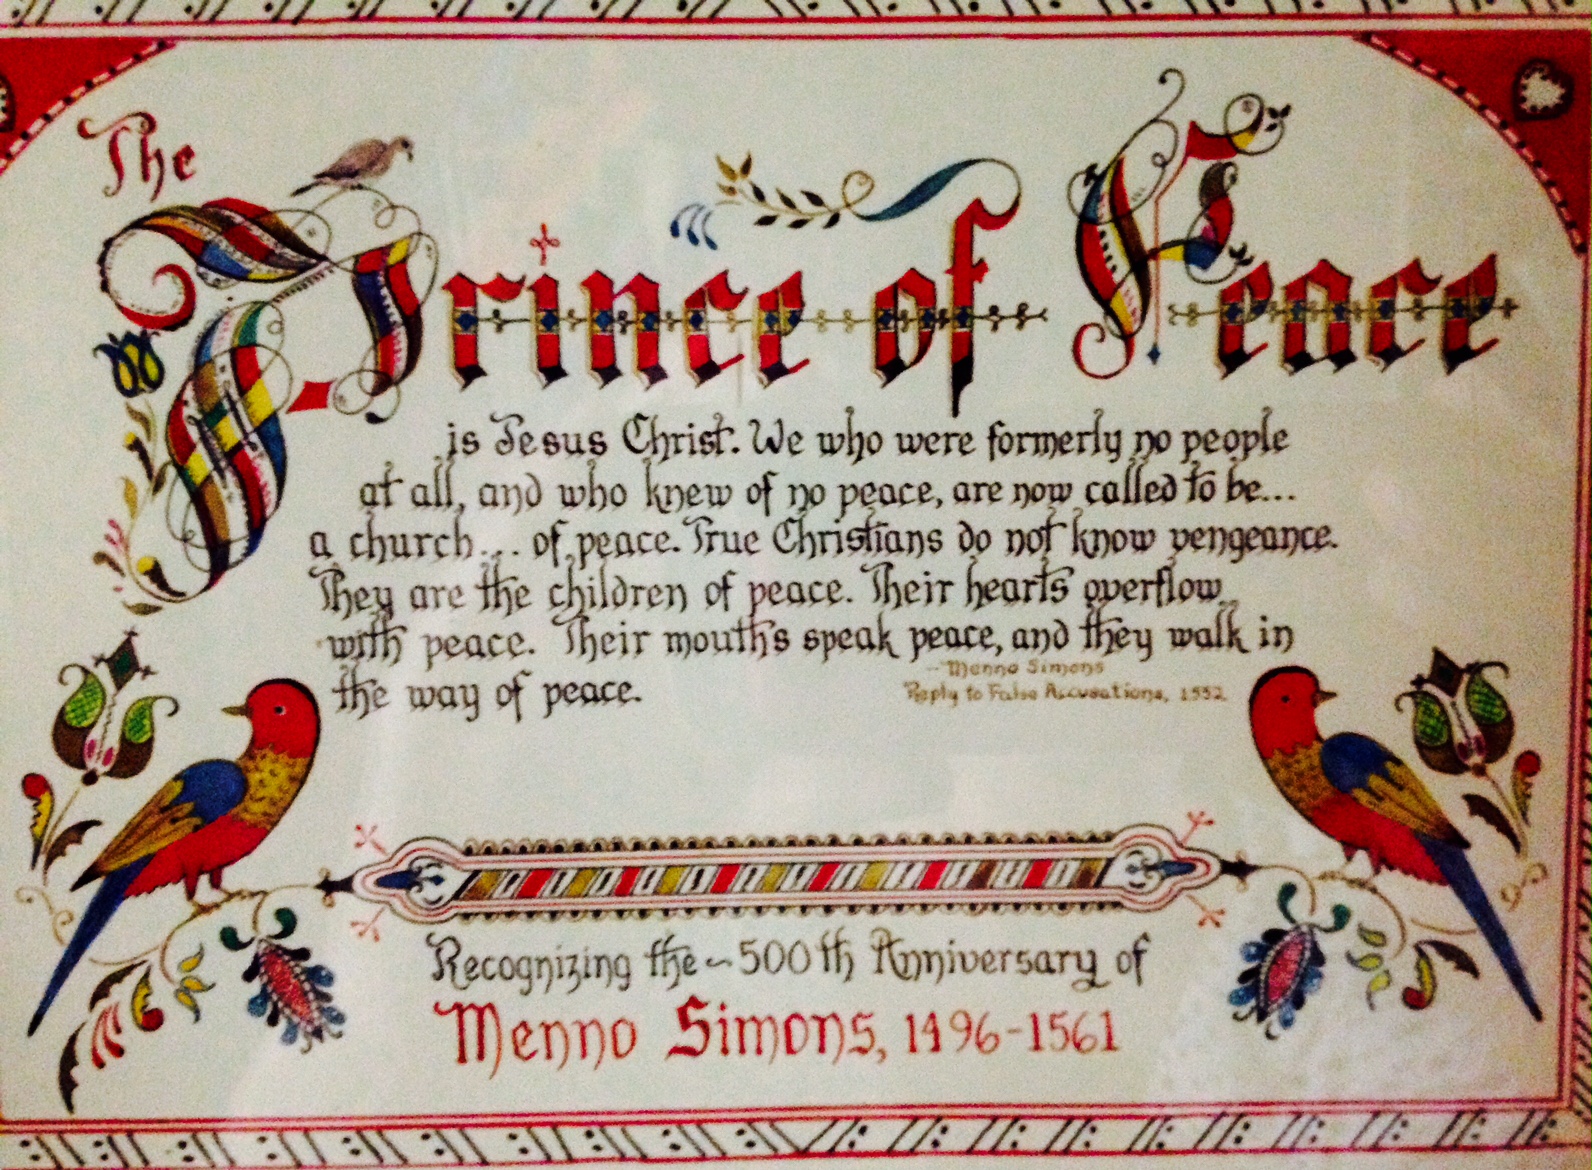 The
Prince of Peace
is Jesus Christ. We who were formerly no people
at all, and who knew of no peace, are now called to be...
a church... of peace. True Christians do not know vengeance.
They are the children of peace. Their hearts overflow
with peace. Their mouths speak peace, and they walk in
the way of peace.
-Menno Simons
Reply to False Accusations, 1552
Recognizing the ~ 500th Anniversary of
Menno Simons, 1496-1561